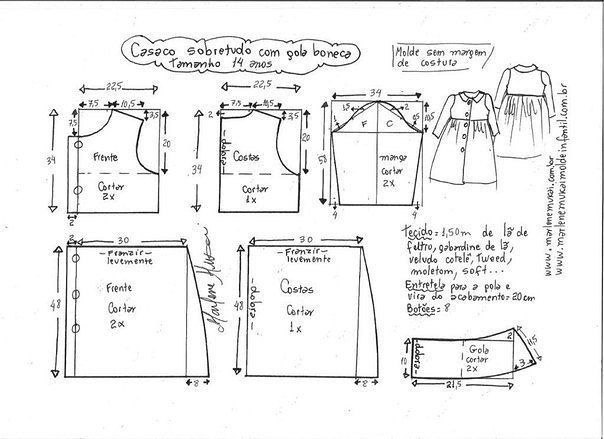 Casaco sobretudo com gola boneca
tamanho 14 anos
Molde sem margem
de costura
22,5
7,5
10,5
7,5
3,5
34
20
Frente
Cortar
2x
2
22,5
7,5
10,5
2
3,5
34
20
dobra
Costas
Cortar
1x
34
1,5
2
1
0,5
58
F
C
manga
Cortar
2x
4
4
www.marlenemukai.com.br
www.marlenemukaimoldeinfantil.com.br
2
30
Franzir
levemente
48
Frente
Cortar
2x
8
Marlene Mukai
30
Franzir
levemente
48
dobra
Costas
Cortar
1x
8
Tecido = 1,50m de lã de
feltro, gabardine de lã,
veludo cotelê, tweed,
moletom, soft...
Entretela para a gola e
vira do acabamento = 20cm
Botões = 8
10
dobra
Gola
cortar
2x
2
11,5
3
21,5